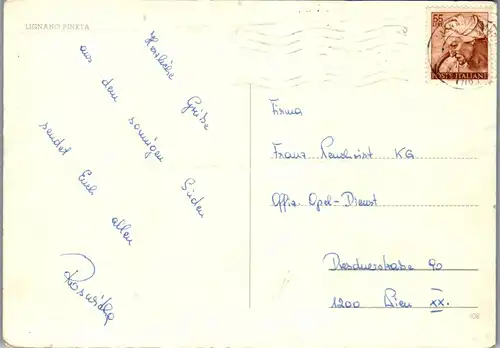 LIGNANO PINETA
Herzliche Grüße
aus dem sonnigen Süden
sendet Euch allen
Roswitha
55
POSTE ITALIANE
Firma
Franz KG
Offiz. Opel-Dienst
Dresdnerstraße 90
1200 Wien XX.
108